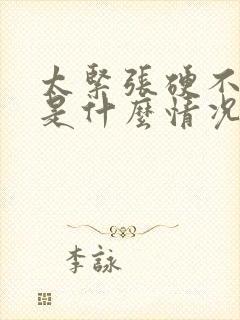 太緊張硬不
是什麼情況
李詠